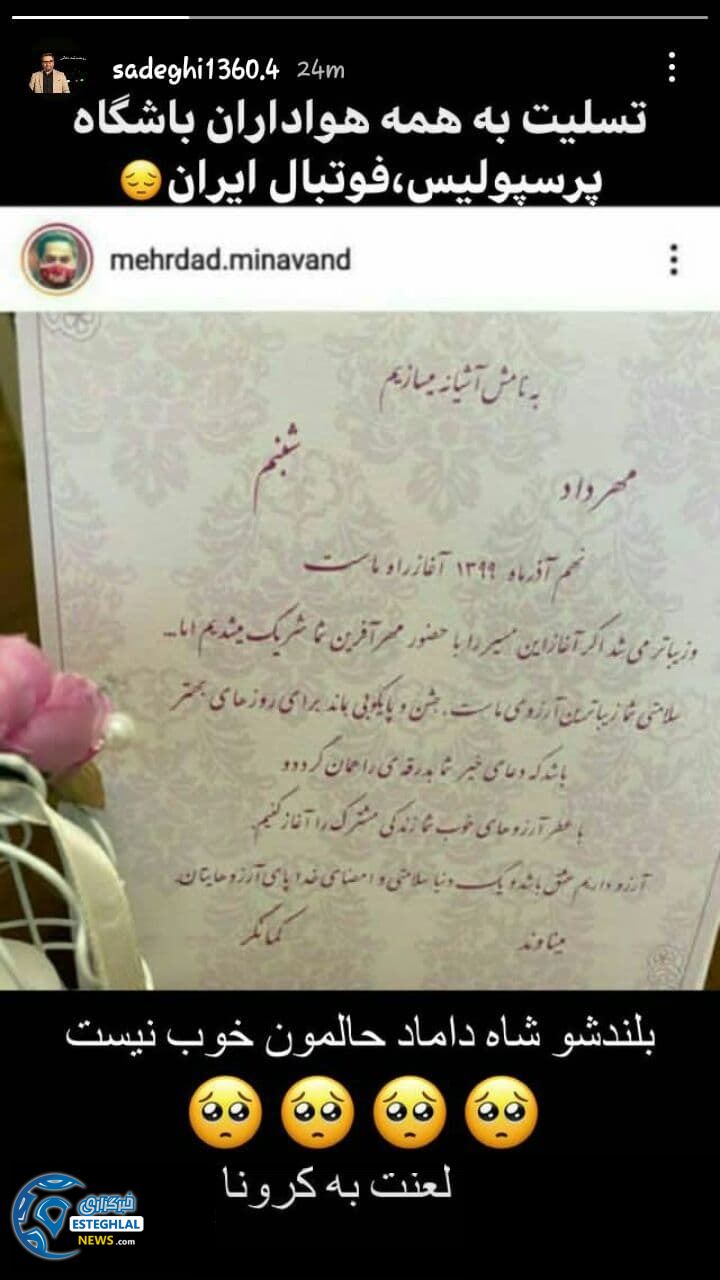 sadeghi1360.4 24m
تسلیت به همه هواداران باشگاه
پرسپولیس،فوتبال ایران😔
mehrdad.minavand
به نامش آشیانه میسازیم
مهرداد شبنم
نهم آذرماه ۱۳۹۹ آغاز راه ماست
وزیباتر می شد اگر آغاز این مسیر را با حضور مهرآفرین شما شریک میشدیم اما...
سلامتی شما زیباترین آرزوی ماست. جشن و پایکوبی بماند برای روزهای بهتر
باشد که دعای خیر شما بدرقه ی راهمان گردد و
با عطر آرزوهای خوب شما زندگی مشترک را آغاز کنیم.
آرزو داریم عشق باشد و یک دنیا سلامتی و امضای خدا پای آرزوهایتان.
میناوند کمانگر
بلندشو شاه داماد حالمون خوب نیست
🥺🥺🥺🥺
لعنت به کرونا
خبرگزاری
ESTEGHLAL
NEWS.com